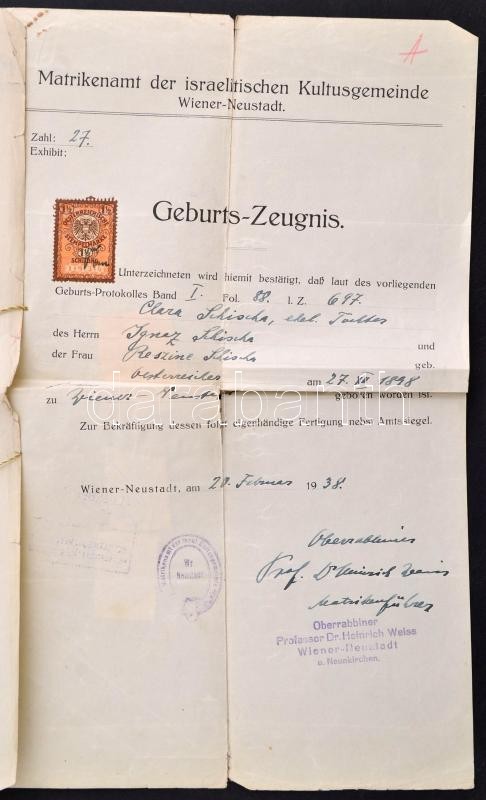 A
Matrikenamt der israelitischen Kultusgemeinde
Wiener-Neustadt.
Zahl: 27.
Exhibit:
Geburts-Zeugnis.
OESTERREICHISCHE
STEMPELMARKE
SCHILLING
Unterzeichneten wird hiemit bestätigt, daß laut des vorliegenden
Geburts-Protokolles Band I. Fol. 88. l. Z. 697.
Clara Schischa, ehel. Tochter
des Herrn Ignaz Schischa und
der Frau Schischa geb.
Oesterreicher am 27. XII 1898
zu Wiener Neustadt geboren worden ist.
Zur Bekräftigung dessen folgt eigenhändige Fertigung nebst Amtssiegel.
Wiener-Neustadt, am 20. Februar 1938.
Oberrabbiner
Prof. Dr Heinrich Weiss
Matrikenführer
Wr
Neustadt
Oberrabbiner
Professor Dr. Heinrich Weiss
Wiener-Neustadt
u. Neunkirchen.
darabanth